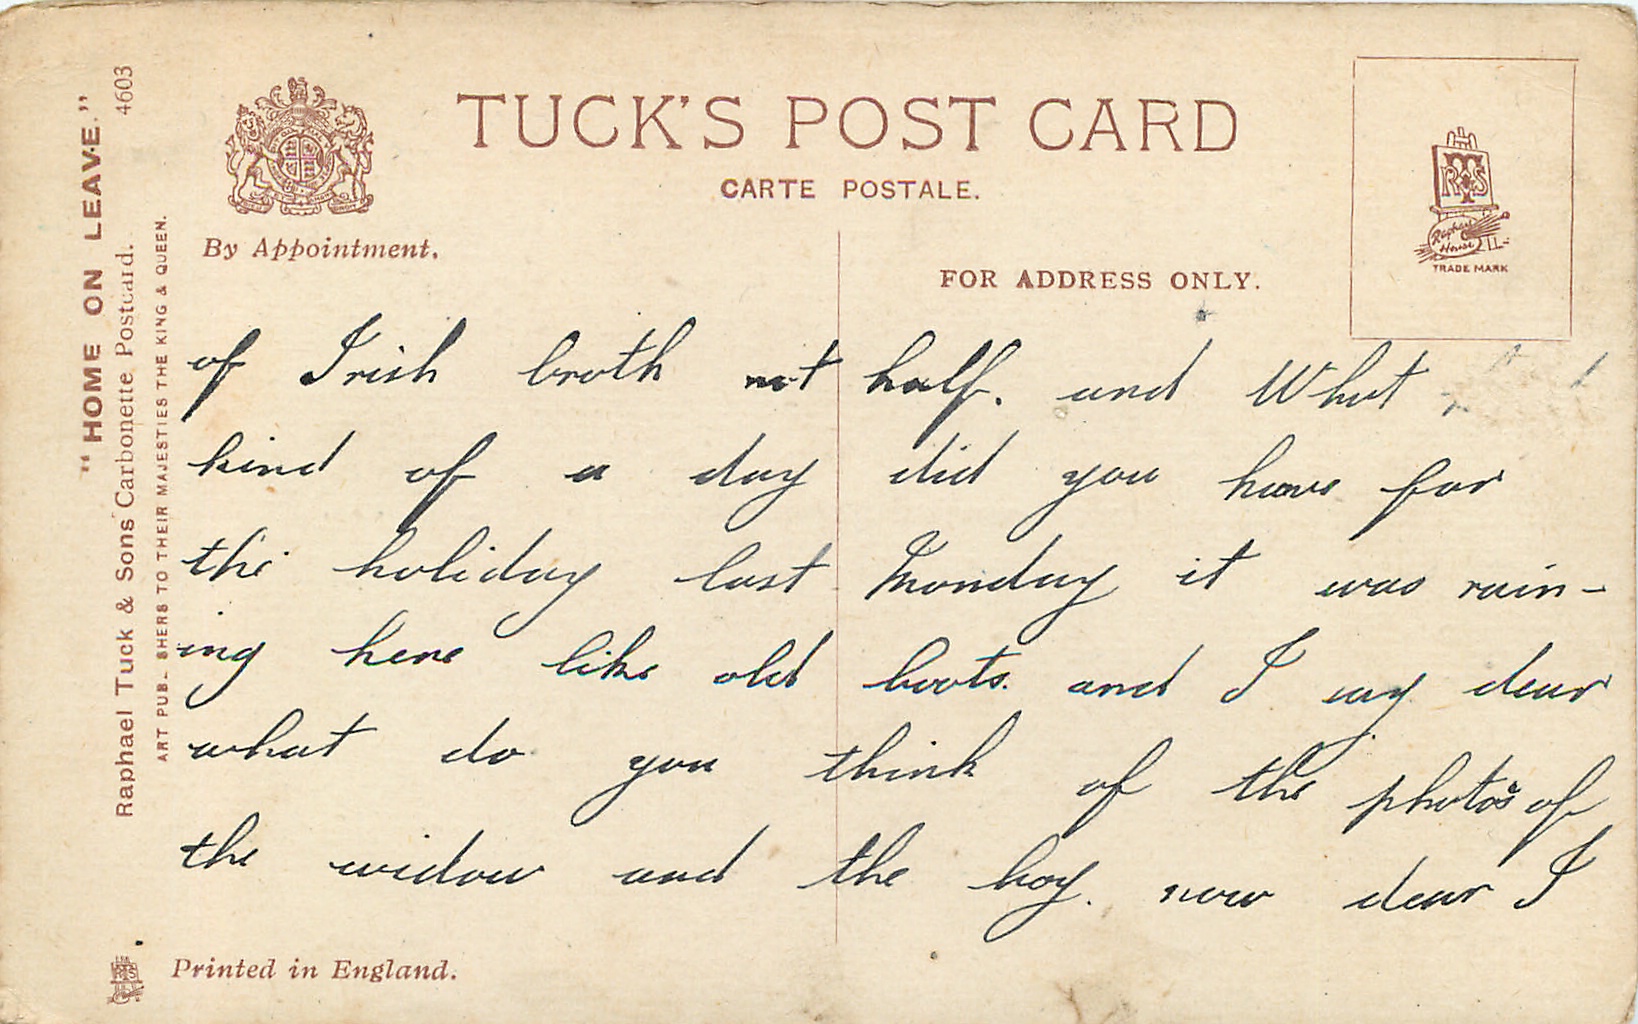 "HOME ON LEAVE."
Raphael Tuck & Sons' Carbonette Postcard. 4603
ART PUBLISHERS TO THEIR MAJESTIES THE KING & QUEEN.
By Appointment.
TUCK'S POST CARD
CARTE POSTALE.
FOR ADDRESS ONLY.
RTS
Raphael House
TRADE MARK
of Irish broth not half. and What
kind of a day did you have for
the holiday last Monday it was rain-
ing here like old boots. and I say dear
what do you think of the photos of
the widow and the boy. now dear I
RTS
Printed in England.